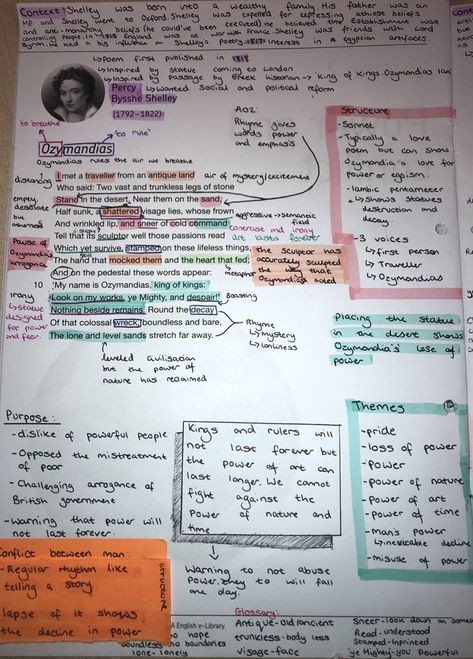 Context: Shelley was born into a wealthy family. His father was an
MP and Shelley went to Oxford. Shelley was expelled for expressing Atheist beliefs
and anti-monarchy beliefs (he could've been executed). He believed the establishment was
controlling people. In 1818 England was at war with France. Shelley was friends with Lord
Byron. We had in his influence on Shelley's poetry. 1817 interest in a egyptian artefacts.
↳Poem first published in 1818
↳Inspired by statue coming to London
↳Inspired by passage by Greek historian → 'king of kings. Ozymandias Iam
↳Wanted Social and political reform
Percy
Bysshe Shelley
(1792–1822)
'to breathe'
'to rule'
Ozymandias
Ozymandias rules the air we breathe
AO2:
Rhyme gives
words power
and emphasis.
distancing
I met a traveller from an antique land
air of mystery/excitement
Who said: Two vast and trunkless legs of stone
empty,
desolate
but
Stand in the desert. Near them on the sand,
Half sunk, a shattered visage lies, whose frown
aggressive → semantic
field
And wrinkled lip, and sneer of cold command
contrast and irony
Tell that its sculptor well those passions read
art lasts forever
Pause of
Ozymandias
arrogance
Which yet survive, stamped on these lifeless things,
still
The hand that mocked them and the heart that fed;
metaphor
the sculptor has
accurately sculpted
the way that
Ozymandias acted
And on the pedestal these words appear:
10
'My name is Ozymandias, king of kings:
irony
↳statue
designed
for power
and fear.
Look on my works, ye Mighty, and despair!'
Boasting
Nothing beside remains. Round the decay
Of that colossal wreck, boundless and bare,
The lone and level sands stretch far away.
Rhyme
↳mystery
↳lonliness
↳leveled civilisation
but the power of
nature has reclaimed
Structure
-Sonnet
-Typically a love
poem but can show
Ozymandia's love for
power or egoism.
-Iambic pentameter
↳Shows statues
destruction and
decay.
-3 voices
↳ first person
↳ Traveller
↳ Ozymandias
Placing the statue
in the desert shows
Ozymandia's lose of
power
Purpose:
-dislike of powerful people
-Opposed the mistreatment
of poor
-Challenging arrogance of
British government
-Warning that power will
not last forever.
Kings and rulers will
not last forever but
the power of art can
last longer. We cannot
fight against the
Power of nature and
time
Warning to not abuse
Power. they to will fall
one day.
Themes
-pride
-loss of power
-Power
-power of nature
-power of art
-power of time
-man's power
↳inevitable decline
-misuse of power
Conflict between man
-Regular rhythm like
telling a story
lapse of it shows
the decline in power
structure
Glossary:
A English e-Library
no hope
boundless-no boundaries
lone-lonely
Antique-old/ancient
trunkless-body less
visage-face
Sneer-look down on someo
Read-understood
Stamped-Inprinted
ye Mighty-you powerful